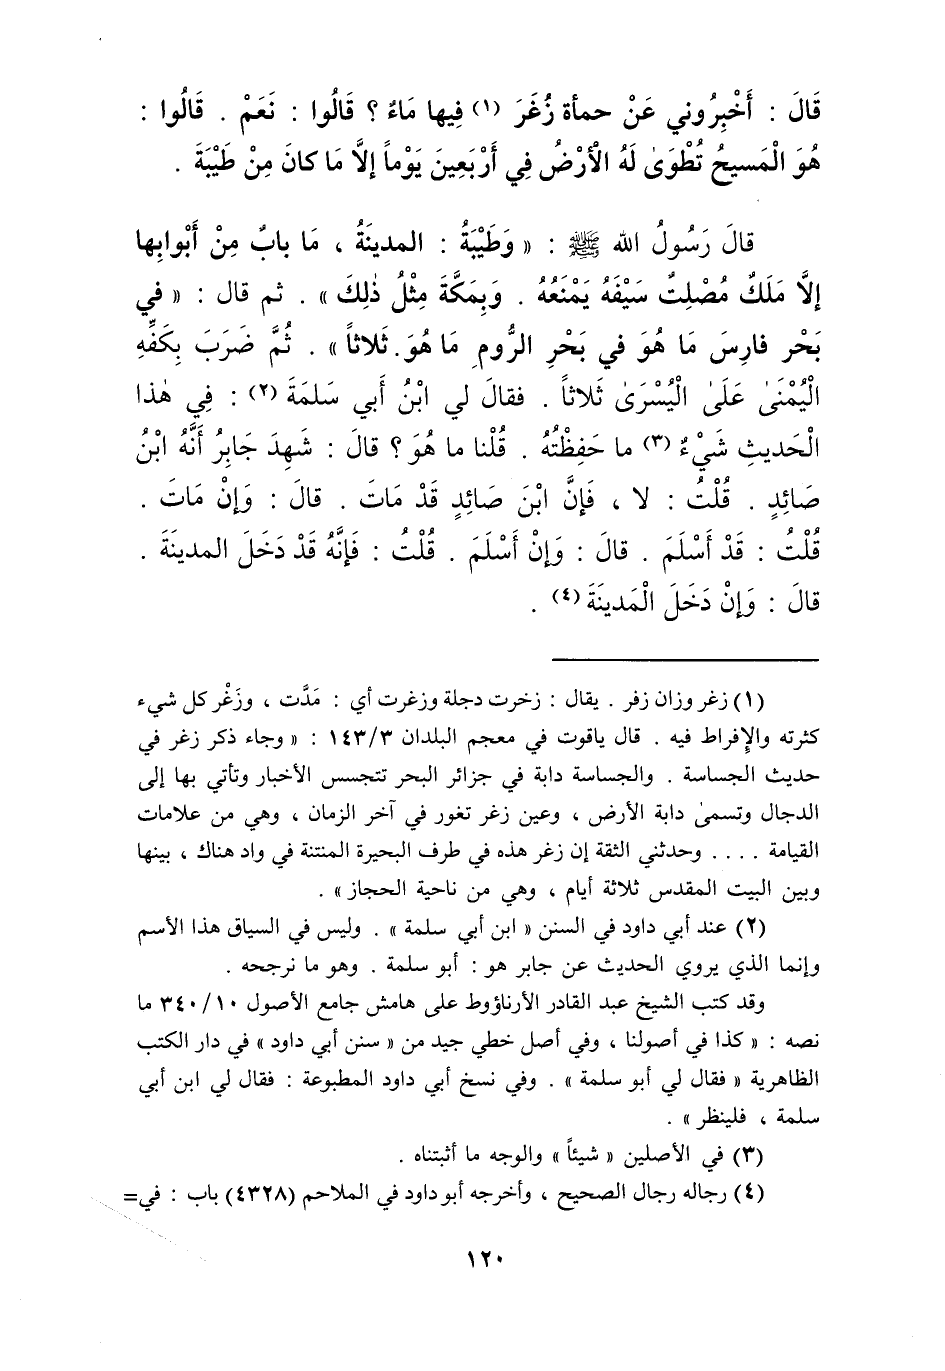 قَالَ : أَخْبِرُوني عَنْ حمأة زُغَرَ (١) فِيها مَاءٌ ؟ قَالُوا : نَعَمْ . قَالُوا :
هُوَ الْمَسيحُ تُطْوَىٰ لَهُ الْأَرْضُ فِي أَرْبَعِينَ يَوْماً إلاَّ مَا كانَ مِنْ طَيْبَةَ .
قالَ رَسُولُ الله ﷺ : « وَطَيْبَةُ : المدينَةُ ، مَا بابٌ مِنْ أَبْوابِها
إلاَّ مَلَكٌ مُصْلِتٌ سَيْفَهُ يَمْنَعُهُ . وَبِمَكَّةَ مِثْلُ ذٰلِكَ » . ثم قال : « في
بَحْر فارِسَ مَا هُوَ في بَحْرِ الرُّومِ مَا هُوَ . ثَلاثاً » . ثُمَّ ضَرَبَ بِكَفِّهِ
الْيُمْنَىٰ عَلَىٰ الْيُسْرَىٰ ثَلاثاً . فقالَ لي ابْنُ أبي سَلَمَةَ (٢) : فِي هٰذا
الْحَديثِ شَيْءٌ (٣) ما حَفِظْتُهُ . قُلْنا ما هُوَ ؟ قالَ : شَهِدَ جَابِرُ أَنَّهُ ابْنُ
صَائِدٍ . قُلْتُ : لا ، فَإِنَّ ابْنَ صَائِدٍ قَدْ مَاتَ . قالَ : وَإنْ مَاتَ .
قُلْتُ : قَدْ أَسْلَمَ . قالَ : وَإنْ أَسْلَمَ . قُلْتُ : فَإِنَّه قَدْ دَخَلَ المدينَةَ .
قالَ : وَإنْ دَخَلَ الْمَدينَةَ (٤) .
(١) زغر وزان زفر . يقال : زخرت دجلة وزغرت أي : مَدَّت ، وزَغْر كل شيء
كثرته والإفراط فيه . قال ياقوت في معجم البلدان ١٤٣/٣ : « وجاء ذكر زغر في
حديث الجساسة . والجساسة دابة في جزائر البحر تتجسس الأخبار وتأتي بها إلى
الدجال وتسمىٰ دابة الأرض ، وعين زغر تغور في آخر الزمان ، وهي من علامات
القيامة .... وحدثني الثقة إن زغر هذه في طرف البحيرة المنتنة في واد هناك ، بينها
وبين البيت المقدس ثلاثة أيام ، وهي من ناحية الحجاز » .
(٢) عند أبي داود في السنن « ابن أبي سلمة » . وليس في السياق هذا الأسم
وإنما الذي يروي الحديث عن جابر هو : أبو سلمة . وهو ما نرجحه .
وقد كتب الشيخ عبد القادر الأرناؤوط على هامش جامع الأصول ٣٤٠/١٠ ما
نصه : « كذا في أصولنا ، وفي أصل خطي جيد من « سنن أبي داود » في دار الكتب
الظاهرية « فقال لي أبو سلمة » . وفي نسخ أبي داود المطبوعة : فقال لي ابن أبي
سلمة ، فلينظر » .
(٣) في الأصلين « شيئاً » والوجه ما أثبتناه .
(٤) رجاله رجال الصحيح ، وأخرجه أبو داود في الملاحم (٤٣٢٨) باب : في=
١٢٠